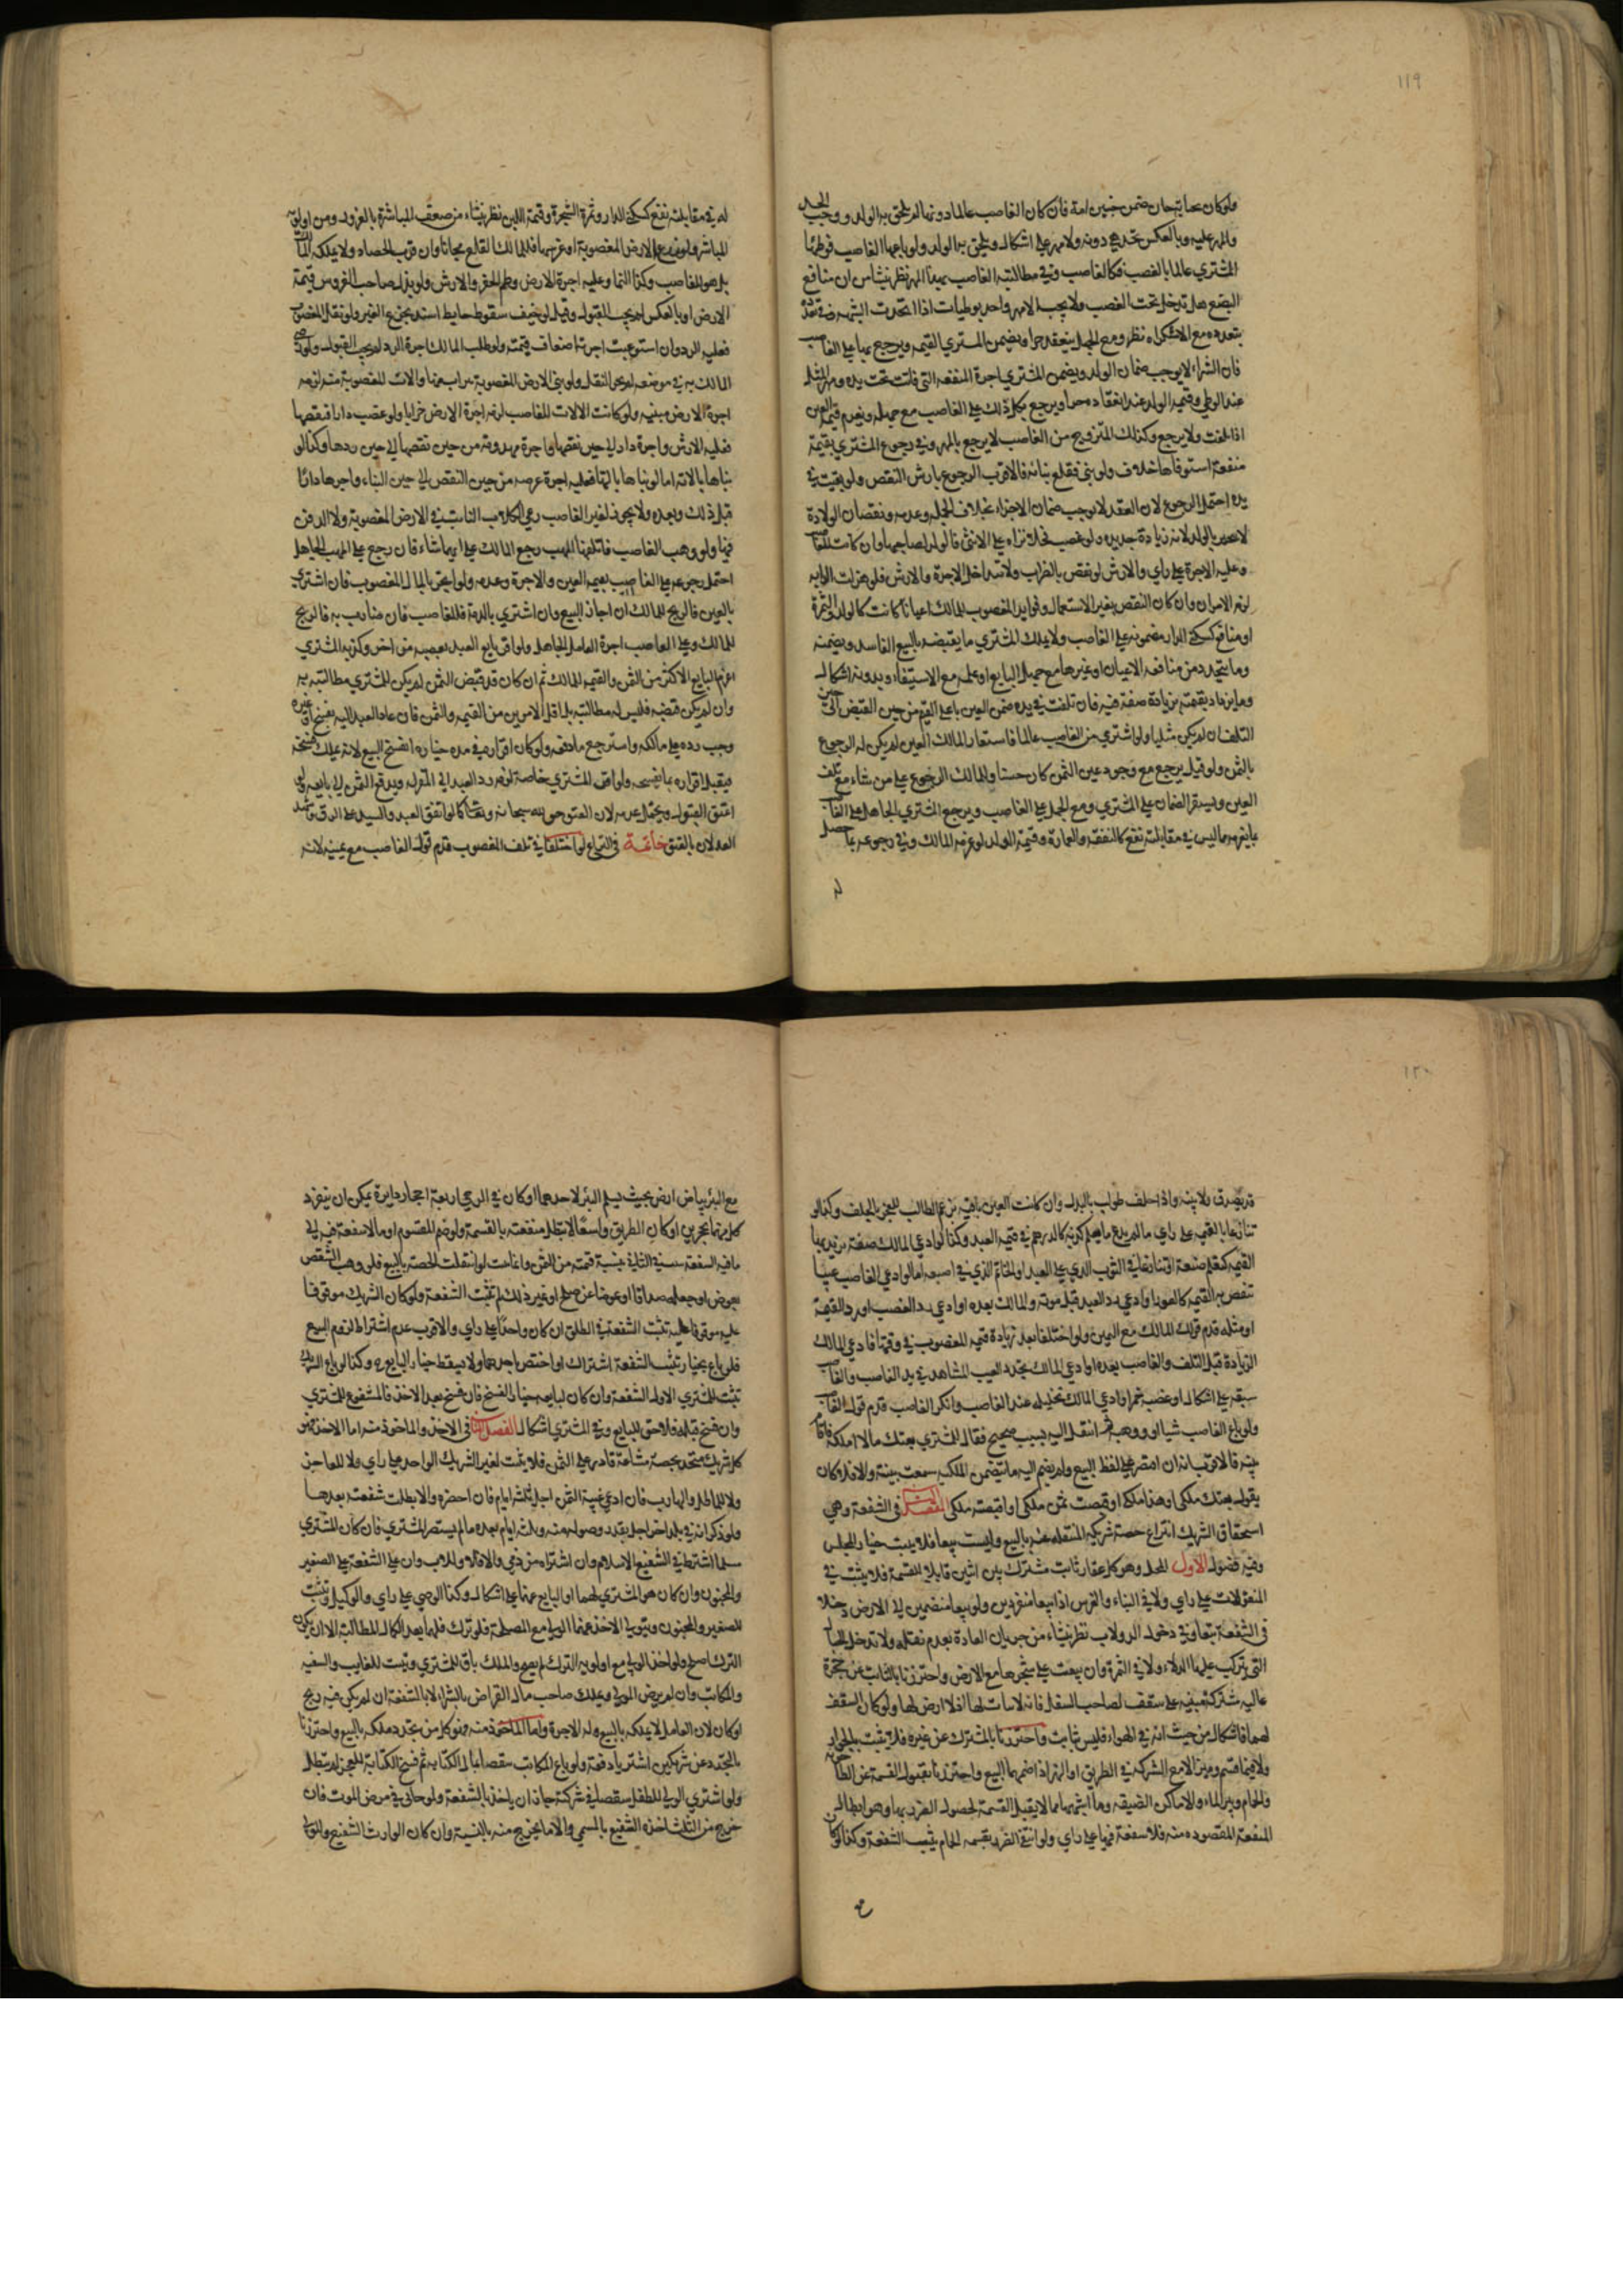 ١١٩
ولو كان بجنايته جان ضمن جنين امة فان كان الغاصب عالما دونها لم يلحق به الولد ووجب الحد
والمهر عليه وبالعكس تحد هي دونه ولا مهر على اشكال ويلحق به الولد ولو باعها الغاصب فوطئها
المشتري عالما بالغصب فكالغاصب وفي مطالبته الغاصب بهذا المهر نظر ينشأ من ان منافع
البضع هل تدخل تحت الغصب ولا يجب الا مهر واحد بوطيات اذا اتحدت الشبهة وفي تعدده
بتعدده مع الاستكراه نظر ومع الجهل ينعقد حرا ويضمن المشتري القيمة ويرجع بها على الغاصب
فان الشراء لا يوجب ضمان الولد ويضمن المشتري اجرة المنفعة التي فاتت تحت يده ومهر المثل
عند الوطي وقيمة الولد عند انعقاده حرا ويرجع بكل ذلك على الغاصب مع جهله ويغرم قيمة العين
اذا تلفت ولا يرجع وكذلك المتزوج من الغاصب لا يرجع بالمهر وفي رجوع المشتري بقيمة
منفعة استوفاها خلاف ولو بنى فقلع بنائه فالاقرب الرجوع بارش النقص ولو بقيت في
يده احتمل الرجوع لان العقد لا يوجب ضمان الاجزاء بخلاف الجملة وعدمه ونقصان الولادة
لا يجبر بالولد لانه زيادة جديدة ولو غصب فحلا فنزاه على الانثى فالولد لصاحبها وان كانت للغاصب
وعليه الاجرة على راي والارش لو نقص بالضراب ولا تتداخل الاجرة والارش فلو هزلت الدابة
لزمه الامران وان كان النقص بغير الاستعمال وفوايد المغصوب للمالك اعيانا كانت كالولد والثمرة
او منافع كسكنى الدار مضمونة على الغاصب ولا يملك المشتري ما يقبضه بالبيع الفاسد ويضمنه
وما يتجدد من منافعه الاعيان او غيرها مع جهل البايع او علمه مع الاستيفاء وبدونه اشكال
وما يزداد بقيمته بزيادة صفة فيه فان تلفت في يده ضمن العين باعلى القيم من حين القبض الى حين
التلف ان لم يكن مثليا ولو اشترى من الغاصب عالما فاستعاد المالك العين لم يكن له الرجوع
بالثمن ولو قيل يرجع مع وجود عين الثمن كان حسنا وللمالك الرجوع على من شاء مع تلف
العين ويستقر الضمان على المشتري ومع الجهل على الغاصب ويرجع المشتري الجاهل على الغاصب
بما يغرمه مما ليس في مقابلته نفع كالنفقة والعمارة وقيمة الولد لو غرمه المالك وفي رجوعه بما حصل
له في مقابلته نفع كسكنى الدار وثمرة الشجرة وقيمة اللبن نظر ينشاء من ضعف المباشرة بالغرور ومن اولوية
المباشر ولو زرع الارض المغصوبة او غرسها فللمالك القلع مجانا وان قرب الحصاد ولا يملكه المالك
بل هو للغاصب وكذا النما وعليه اجرة الارض وطم الحفر والارش ولو بذل صاحب الغروس قيمة
الارض او بالعكس لم يجب القبول وقيل لو خيف سقوط حايط اسند بجذع الغير ولو نقل المغصوب
فعليه الرد وان استوعبت اجرته اضعاف قيمته ولو طلب المالك اجرة الرد لم يجب القبول ولو رضي
المالك به في موضعه لم يجز النقل ولو بنى الارض المغصوبة بتراب منها والات للمغصوب منه لزمه
اجرة الارض مبنية ولو كانت الالات للغاصب لزمه اجرة الارض خرابا ولو غصب دارا فنقضها
فعليه الارش واجرة دار الى حين نقضها واجرة مهدومة من حين نقضها الى حين ردها وكذا لو
بناها بالاته اما لو بناها بالتها فعليه اجرة عرصه من حين النقض الى حين البناء واجرها دارا
قبل ذلك وبعده ولا يجوز لغير الغاصب رعي الكلاء النابت في الارض المغصوبة ولا الدفن
فيها ولو وهب الغاصب فاتلفها المتهب رجع المالك على ايهما شاء فان رجع على المتهب الجاهل
احتمل رجوعه على الغاصب بقيمة العين والاجرة وعدمه ولو اتجر بالمال المغصوب فان اشترى
بالعين فالربح للمالك ان اجاز البيع وان اشترى بالذمة فللغاصب فان ضارب به فالربح
للمالك وعلى الغاصب اجرة العامل الجاهل ولو اقر بايع العبد بغصبه من اخر وكذبه المشتري
اغرم البايع الاكثر من الثمن والقيمة للمالك ثم ان كان قد قبض الثمن لم يكن للمشتري مطالبته به
وان لم يكن قبضه فليس له مطالبته بل باقل الامرين من القيمة والثمن فان عاد العبد اليه بفسخ او غيره
وجب رده على مالكه واسترجع ما دفعه ولو كان اقراره في مدة خياره انفسخ البيع لانه يملك فسخه
فيقبل اقراره بما يفسخه ولو اقر المشتري خاصة لزمه رد العبد الى المقر له ويدفع الثمن الى بايعه ولو
اعتق القبول ويحتمل عدمه لان العتق حق لله سبحانه
العدلان بالعتق خاتمة في النزاع لو اختلفا في تلف المغصوب قدم قول الغاصب مع يمينه لانه
١٢٠
قد يصدق ولا بينة واذا حلف طولب بالبدل وان كانت العين باقية بزعم الطالب للعجز بالحلف وكذا لو
تنازعا بالقيمة على راي ما لم يدع ما يعلم كذبه كالدرهم في قيمة العبد وكذا لو ادعى المالك صفة تزيد بها
القيمة كتعلم صنعة او تنازعا في الثوب الذي على العبد او الخاتم الذي في اصبعه اما لو ادعى الغاصب عيبا
تنقص به القيمة كالعور او ادعى رد العبد قبل موته والمالك بعده او ادعى رد الغصب او رد القيمة
او مثله قدم قول المالك مع اليمين ولو اختلفا بعد زيادة قيمة المغصوب في وقتها فادعى المالك
الزيادة قبل التلف والغاصب بعده او ادعى المالك تجدد العيب المشاهد في يد الغاصب والغاصب
سبقه على اشكال او غصب خمرا وادعى المالك تخليله عند الغاصب وانكر الغاصب قدم قول الغاصب
ولو باع الغاصب شيا او وهبه ثم انتقل اليه بسبب صحيح فقال للمشتري بعتك ما لا املكه فاقام
بينة فالاقرب انه ان اقتصر على لفظ البيع ولم يضم اليه ما يتضمن الملكية سمعت بينته والا فلا وكان
يقول بعتك ملكي او هذا ملكي او قبضت ثمن ملكي او اقبضته ملكي المقصد الثالث في الشفعة وهي
استحقاق الشريك انتزاع حصة شريكه المنتقلة عنه بالبيع وليست بيعا فلا يثبت خيار المجلس
وفيه فصول الاول المحل وهو كل عقار ثابت مشترك بين اثنين قابلا للقسمة فلا يثبت في
المنقولات على راي ولا في البناء والغرس اذا بيعا منفردين ولو بيعا منضمين الى الارض دخلا
في الشفعة تبعا وفي دخول الدولاب نظر ينشاء من جريان العادة بعدم نقله ولا تدخل الحبال
التي تركب عليها الدلاء ولا في الثمرة وان بيعت على شجرها مع الارض واحترزنا بالثابت عن حجرة
عالية مشتركة مبنية على سقف لصاحب السفل فانه لا ثبات لها اذ لا ارض لها ولو كان السقف
لهما فاشكال من حيث انه في الهواء فليس بثابت واحترزنا بالمشترك عن غيره فلا يثبت بالجوار
ولا فيما قسم وميز الا مع الشركة في الطريق او النهر اذا ضمهما البيع واحترزنا بقبول القسمة عن الطاحونة
والحمام وبئر الماء والاماكن الضيقة وما اشبهها مما لا يقبل القسمة لحصول الضرر بها وهو ابطال
المنفعة المقصودة منه فلا شفعة فيها على راي ولو انتفى الضرر بقسمة الحمام يثبت الشفعة وكذا لو كان
مع البئر بياض ارض بحيث يسلم البئر لاحدهما او كان في الرحى اربعة احجار دايرة يمكن ان ينفرد
كل منهما بحجرين او كان الطريق واسعا لا تبطل منفعته بالقسمة ولو ضم المقسوم او ما لا شفعة فيه الى
ما فيه الشفعة ثبت في الثاني بنسبة قيمته من الثمن وانما تثبت لو انتقلت الحصة بالبيع فلو وهب الشقص
بعوض او جعله صداقا او عوضا عن صلح او غير ذلك لم تثبت الشفعة ولو كان الشريك موقوفا
عليه تثبت الشفعة في الطلق ان كان واحدا على راي والاقرب عدم اشتراط لزوم البيع
فلو باع بخيار تثبت الشفعة اشترك او اختص باحدهما ولا يسقط خيار البايع وكذا لو باع الشريك
تثبت للمشتري الاول الشفعة وان كان لبايعه خيار الفسخ فان فسخ بعد الاخذ فالمشفوع للمشتري
وان فسخ قبله فلا حق للبايع وفي المشتري اشكال الفصل الثاني في الاخذ والماخوذ منه اما الاخذ فهو
كل شريك متحد بحصة مشاعة قادر على الثمن فلا يثبت لغير الشريك الواحد على راي ولا للعاجز
ولا المماطل والهارب فان ادعى غيبة الثمن اجل ثلثة ايام فان احضره والا بطلت شفعته بعدها
ولو ذكر انه في بلد اخر اجل بقدر وصوله منه وثلثة ايام بعده ما لم يستضر المشتري فان كان المشتري
مسلما اشترط في الشفيع الاسلام وان اشتراه من ذمي والا فلا وللاب وان علا الشفعة على الصغير
والمجنون وان كان هو المشتري لهما او البايع عنهما على اشكال وكذا الوصي على راي والوكيل وتثبت
للصغير والمجنون ويتولى الاخذ عنهما الولي مع المصلحة فلو ترك فلهما بعد الكمال المطالبة الا ان يكون
الترك اصلح ولو اخذ الولي مع اولوية الترك لم يصح والملك باق للمشتري وتثبت للغايب والسفيه
والمكاتب وان لم يرض المولى ويملك صاحب مال القراض بالشراء لا بالشفعة ان لم يكن فيه ربح
او كان لان العامل لا يملكه بالبيع وله الاجرة واما الماخوذ منه فهو كل من تجدد ملكه بالبيع واحترزنا
بالتجدد عن شريكين اشتريا دفعة ولو باع المكاتب شقصا بمال الكتابة ثم فسخ الكتابة للعجز لم تبطل
ولو اشترى الولي للطفل شقصا في شركته جاز ان ياخذ بالشفعة ولو حابى في مرض الموت فان
خرج من الثلث اخذه الشفيع بالمسمى والا ما يخرج منه بالنسبة وان كان الوارث الشفيع ولو